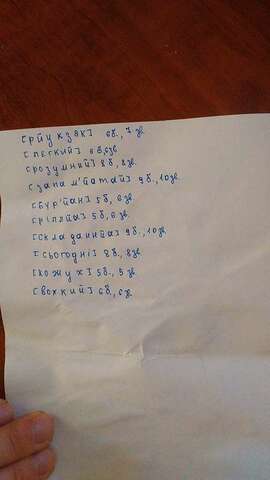 [рйукзак] 6б., 7зв.
[легкий] 6б, 6зв
[розумний] 8б, 8зв.
[запам'йатай] 9б., 10зв.
[бур'йан] 5б, 6зв.
[рілл'а] 5б, 6зв.
[складанн'а] 9б., 10зв.
[с'огодн'і] 8б., 8зв.
[кожух] 5б., 5зв
[вохкий] 6б, 6зв.